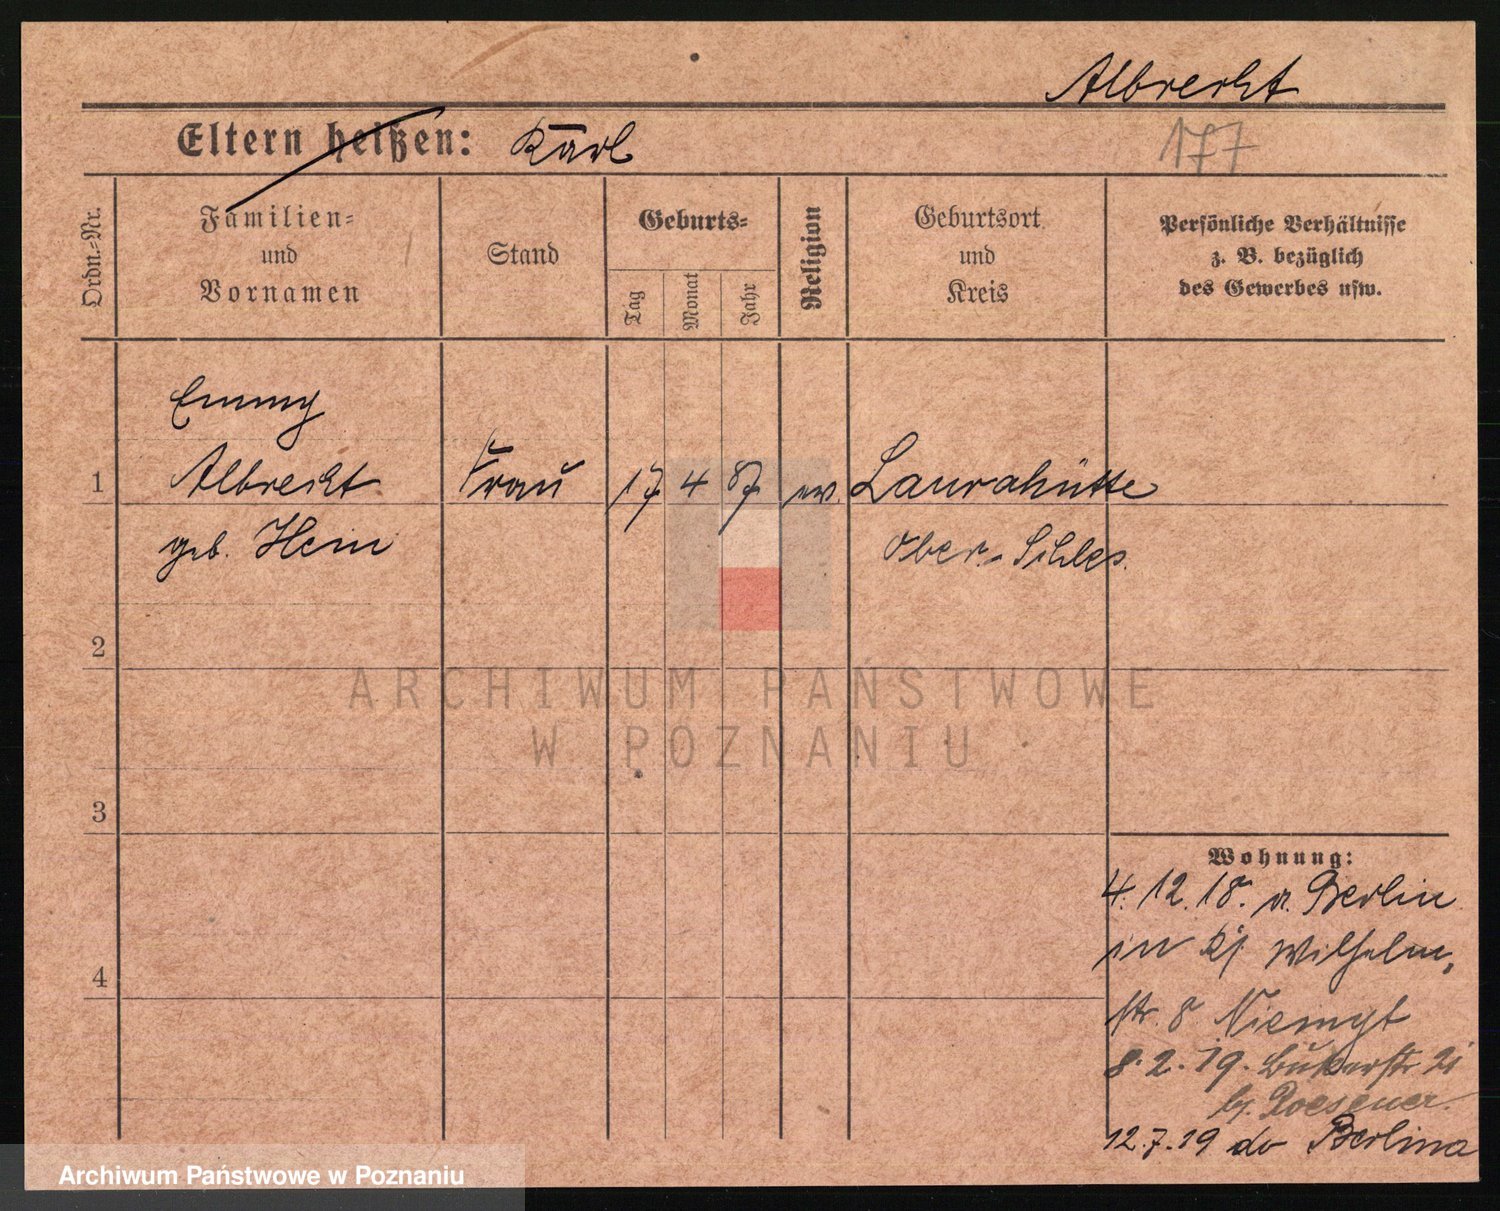 Albrecht
Eltern heißen: Karl
177
Ordn.=Nr.
Familien=
und
Vornamen
Stand
Geburts=
Tag
Monat
Jahr
Religion
Geburtsort
und
Kreis
Persönliche Verhältnisse
z. B. bezüglich
des Gewerbes usw.
Emmy
1 Albrecht Frau 17 4 87 ev. Laurahütte
geb. Hein Ober-Schles.
2
ARCHIWUM PAŃSTWOWE
W POZNANIU
3
Wohnung:
4.12.18. v. Berlin
in Wilhelm-
4
str. 8
8.2.19. Bukerstr.
12.7.19 do Berlina
Archiwum Państwowe w Poznaniu